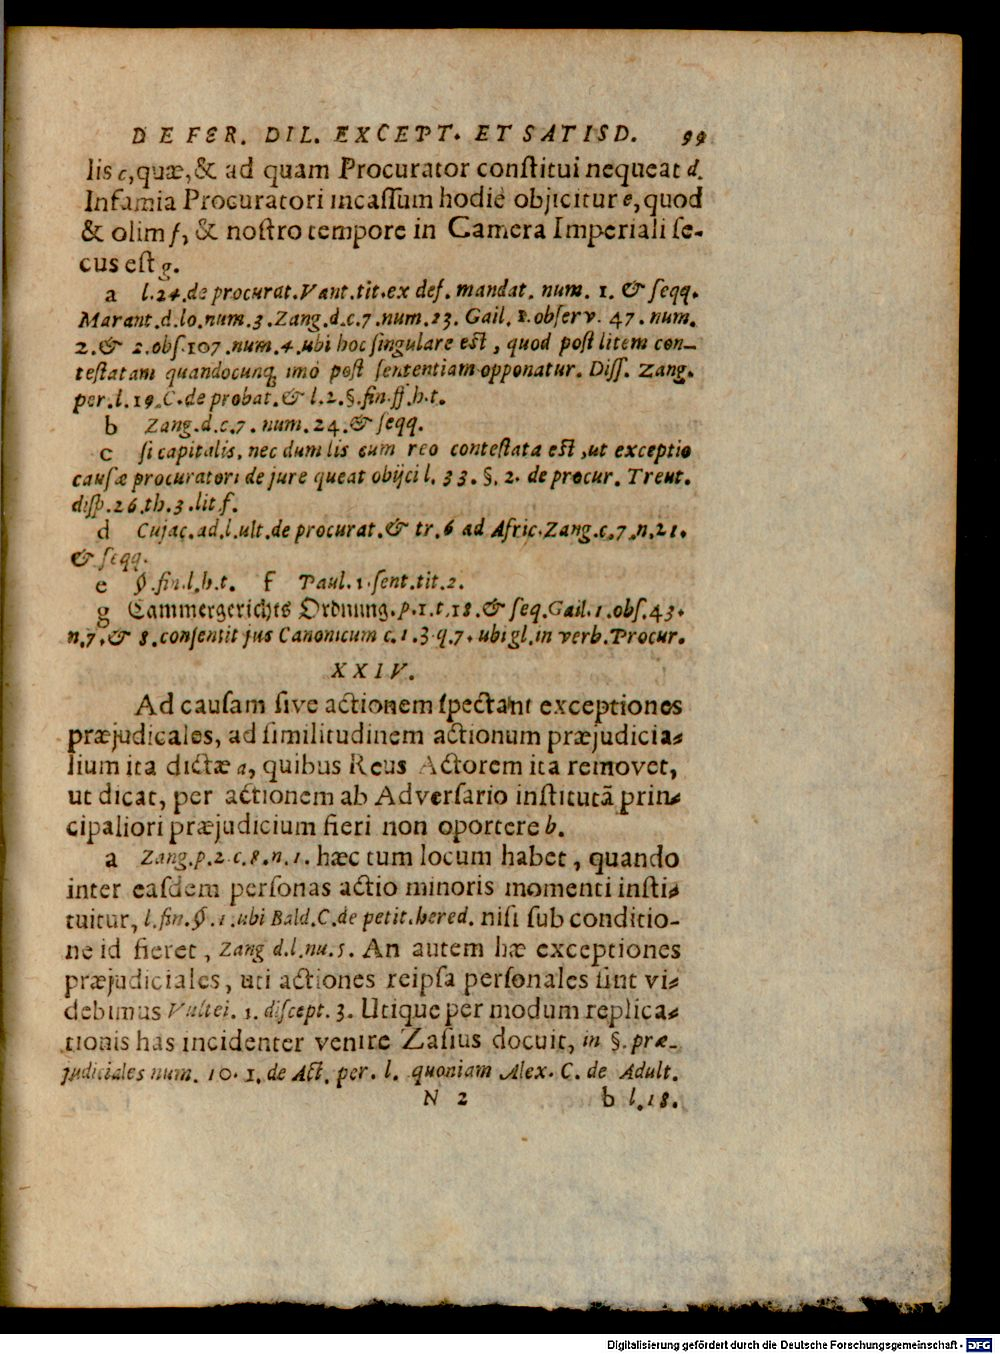 DE FER. DIL. EXCEPT. ET SATISD. 99
lis c, quæ, & ad quam Procurator constitui nequeat d.
Infamia Procuratori incassum hodiè objicitur e, quod
& olim f, & nostro tempore in Camera Imperiali se-
cus est g.
a l. 24. de procurat. Vant. tit. ex def. mandat. num. 1. & seqq.
Marant. d. lo. num. 3. Zang. d. c. 7. num. 23. Gail. 1. observ. 47. num.
2. & 2. obs. 107. num. 4. ubi hoc singulare est, quod post litem con-
testatam quandocunq; imò post sententiam opponatur. Diss. Zang.
per. l. 19. C. de probat. & l. 2. §. fin. ff. h. t.
b Zang. d. c. 7. num. 24. & seqq.
c si capitalis, nec dum lis cum reo contestata est, ut exceptio
causæ procuratori de jure queat obijci l. 33. §. 2. de procur. Treut.
disp. 26. th. 3. lit f.
d Cujac. ad. l. ult. de procurat. & tr. 6 ad Afric. Zang. c. 7. n. 21.
& seqq.
e §. fin. l. h. t. f Paul. 1. sent. tit. 2.
g Cammergerichts Ordnung. p. 1. t. 18. & seq. Gail. 1. obs. 43.
n. 7. & 8. consentit jus Canonicum c. 1. 3. q. 7. ubi gl. in verb. Procur.
XXIV.
Ad causam sive actionem spectant exceptiones
præjudicales, ad similitudinem actionum præjudicia-
lium ita dictæ a, quibus Reus Actorem ita removet,
ut dicat, per actionem ab Adversario institutã prin-
cipaliori præjudicium fieri non oportere b.
a Zang. p. 2. c. 8. n. 1. hæc tum locum habet, quando
inter easdem personas actio minoris momenti insti-
tuitur, l. fin. §. 1. ubi Bald. C. de petit. hered. nisi sub conditio-
ne id fieret, Zang d. l. nu. 5. An autem hæ exceptiones
præjudiciales, uti actiones reipsa personales sint vi-
debimus Vultei. 1. discept. 3. Utique per modum replica-
tionis has incidenter venire Zasius docuit, in §. præ-
judiciales num. 10. 1. de Act. per. l. quoniam Alex. C. de Adult.
N 2 b l. 18.
Digitalisierung gefördert durch die Deutsche Forschungsgemeinschaft - DFG